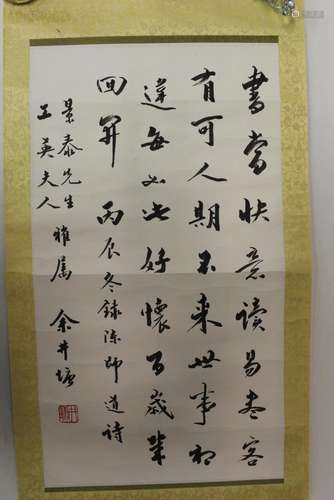 書當快意讀易盡客
有可人期不來世事相
違每如此好懷百歲幾
囘開 丙辰冬錄陳師道詩
景泰先生
玉英夫人
雅屬 余井塘